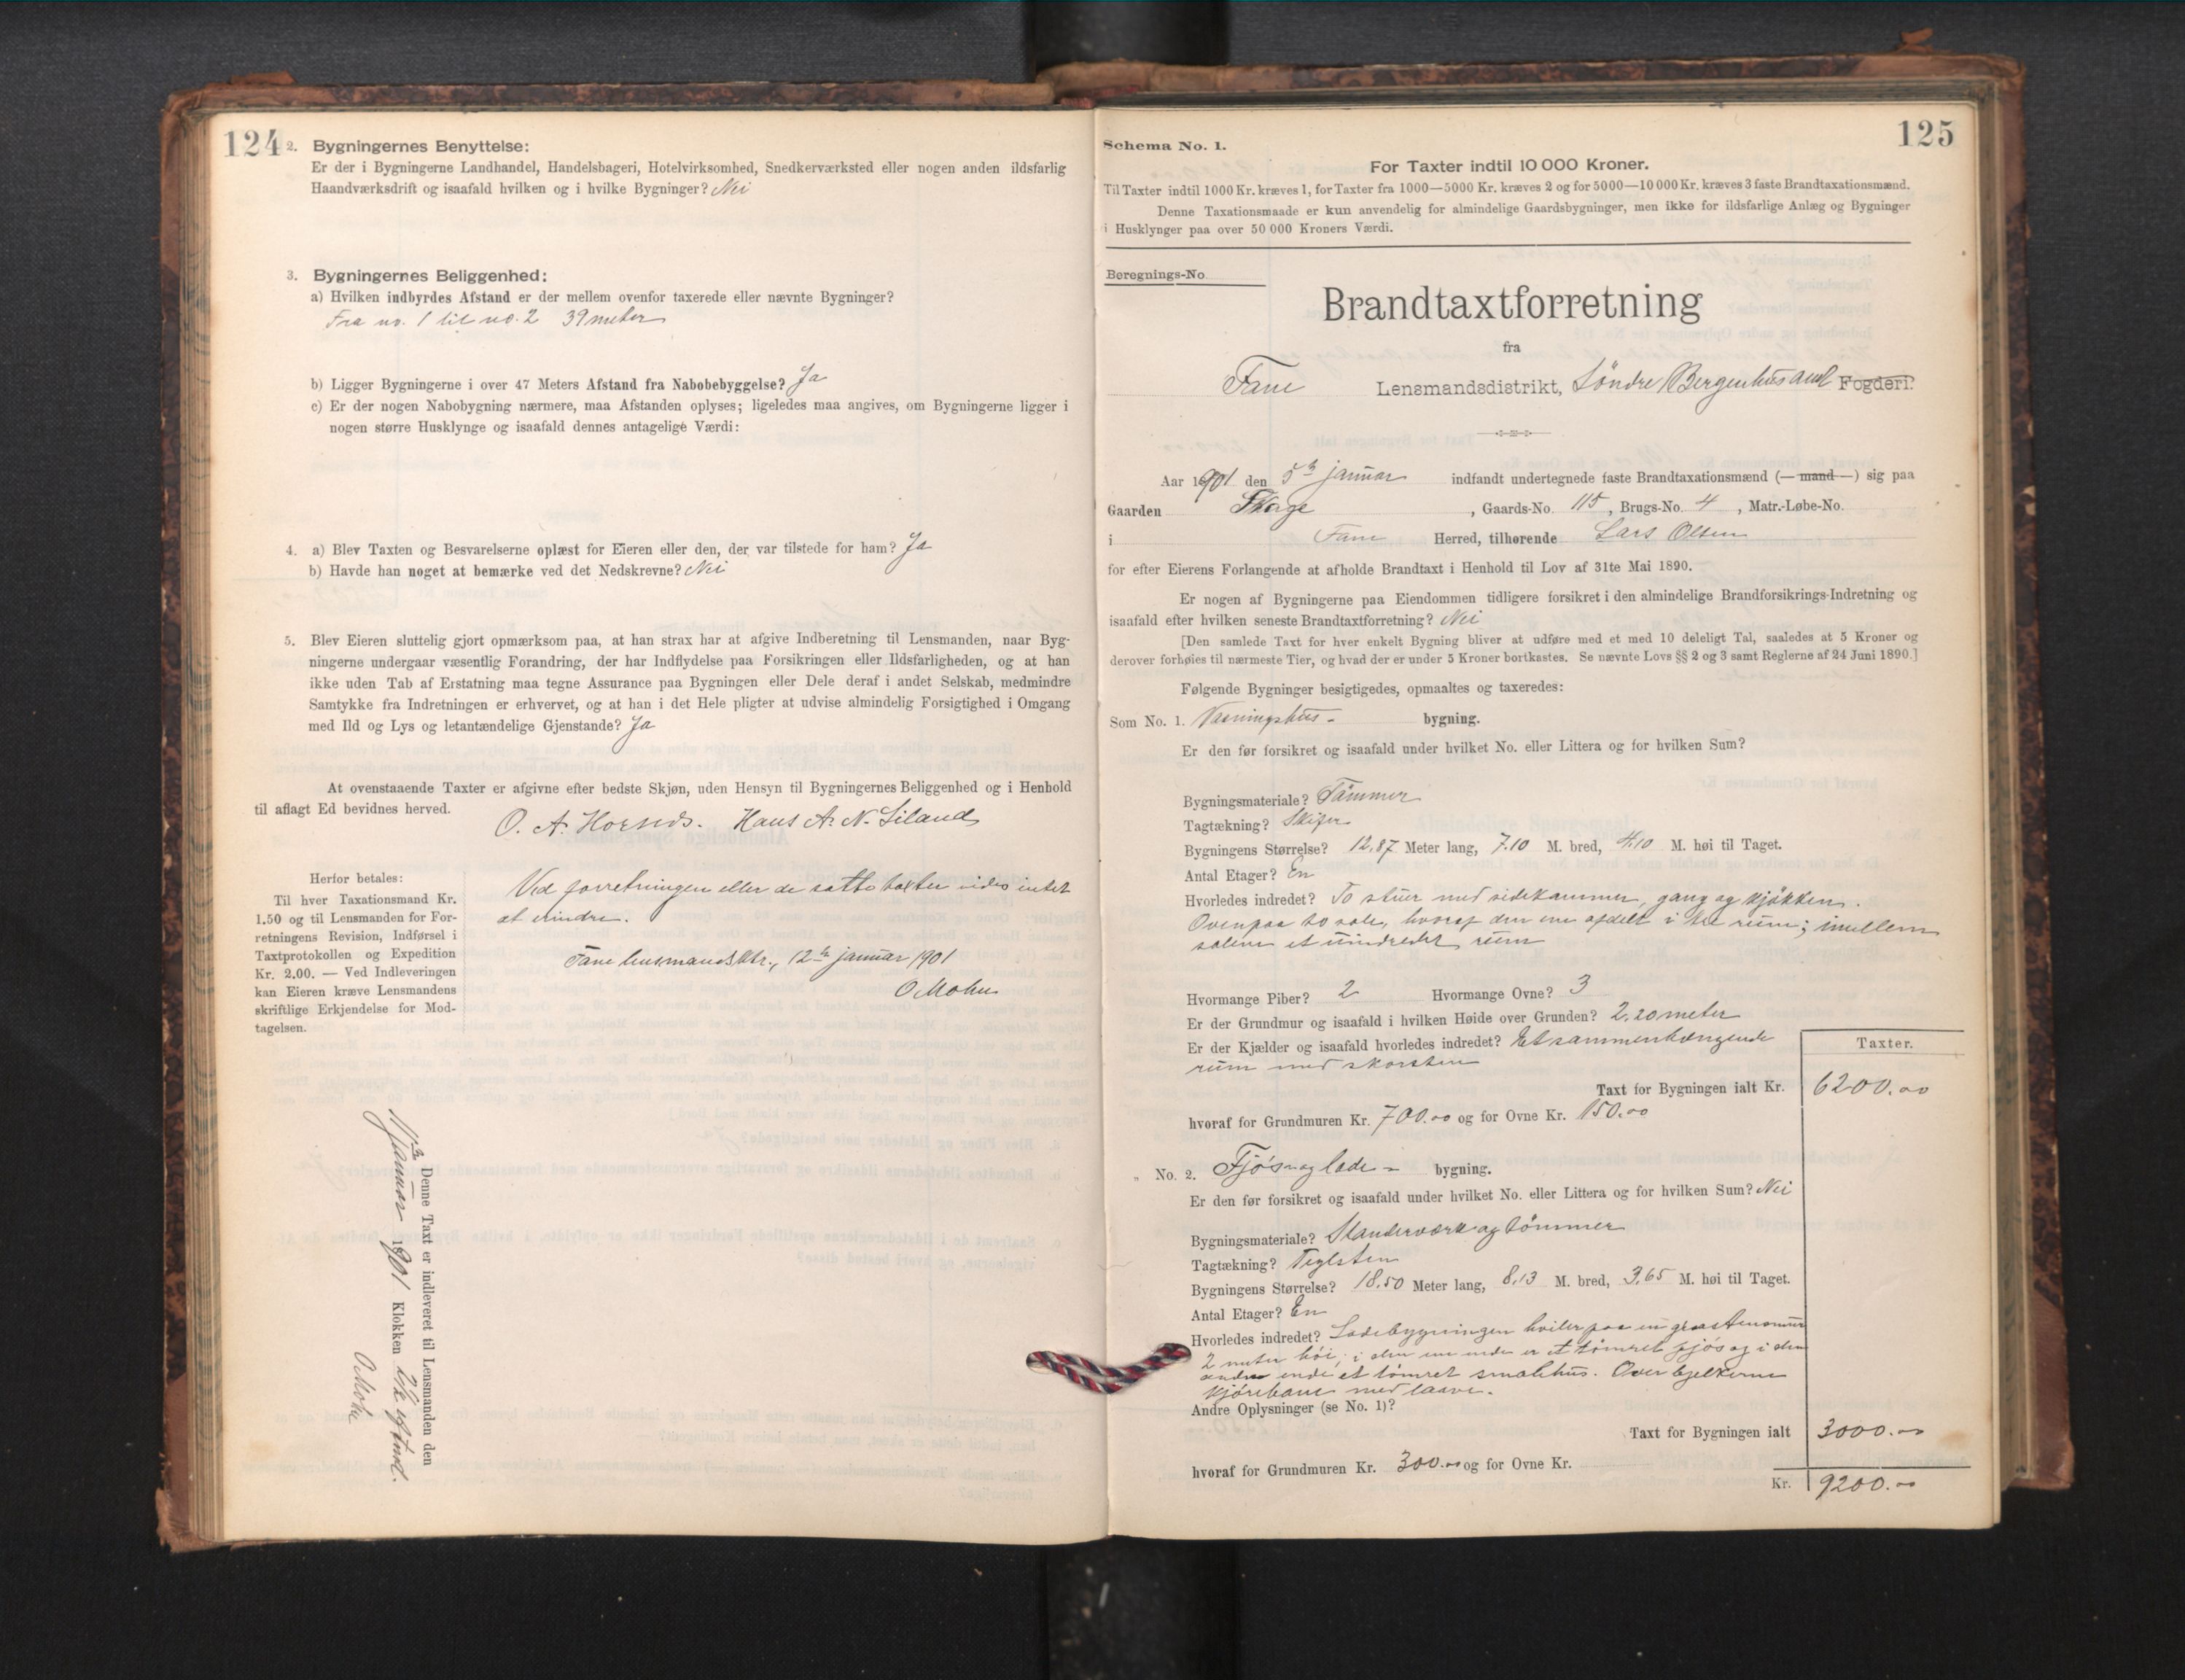 124
2. Bygningernes Benyttelse:
Er der i Bygningerne Landhandel, Handelsbageri, Hotelvirksomhed, Snedkerværksted eller nogen anden ildsfarlig
Haandværksdrift og isaafald hvilken og i hvilke Bygninger? Nei
3. Bygningernes Beliggenhed:
a) Hvilken indbyrdes Afstand er der mellem ovenfor taxerede eller nævnte Bygninger?
Fra no. 1 til no. 2 39 meter
b) Ligger Bygningerne i over 47 Meters Afstand fra Nabobebyggelse? Ja
c) Er der nogen Nabobygning nærmere, maa Afstanden oplyses; ligeledes maa angives, om Bygningerne ligger i
nogen større Husklynge og isaafald dennes antagelige Værdi:
4. a) Blev Taxten og Besvarelserne oplæst for Eieren eller den, der var tilstede for ham? Ja
b) Havde han noget at bemærke ved det Nedskrevne? Nei
5. Blev Eieren sluttelig gjort opmærksom paa, at han strax har at afgive Indberetning til Lensmanden, naar Byg-
ningerne undergaar væsentlig Forandring, der har Indflydelse paa Forsikringen eller Ildsfarligheden, og at han
ikke uden Tab af Erstatning maa tegne Assurance paa Bygningen eller Dele deraf i andet Selskab, medmindre
Samtykke fra Indretningen er erhvervet, og at han i det Hele pligter at udvise almindelig Forsigtighed i Omgang
med Ild og Lys og letantændelige Gjenstande? Ja
At ovenstaaende Taxter er afgivne efter bedste Skjøn, uden Hensyn til Bygningernes Beliggenhed og i Henhold
til aflagt Ed bevidnes herved.
O. A. Hans A. N. Liland
Herfor betales:
Til hver Taxationsmand Kr.
1.50 og til Lensmanden for For-
retningens Revision, Indførsel i
Taxtprotokollen og Expedition
Kr. 2.00. — Ved Indleveringen
kan Eieren kræve Lensmandens
skriftlige Erkjendelse for Mod-
tagelsen.
Ved forretningen eller de satte taxter vides intet
at erindre.
Fane lensmandsktr., 12te januar 1901
O Mohn
Denne Taxt er indleveret til Lensmanden den
11te januar 1901 Klokken 2 1/2 eftmd.
O Mohn
125
Schema No. 1.
For Taxter indtil 10 000 Kroner.
Til Taxter indtil 1000 Kr. kræves 1, for Taxter fra 1000—5000 Kr. kræves 2 og for 5000—10 000 Kr. kræves 3 faste Brandtaxationsmænd.
Denne Taxationsmaade er kun anvendelig for almindelige Gaardsbygninger, men ikke for ildsfarlige Anlæg og Bygninger
i Husklynger paa over 50 000 Kroners Værdi.
Beregnings-No
Brandtaxtforretning
fra
Fane Lensmandsdistrikt, Söndre Bergenhus amt Fogderi.
Aar 1901 den 5te januar indfandt undertegnede faste Brandtaxationsmænd (— mand —) sig paa
Gaarden Skage, Gaards-No. 115, Brugs-No. 4, Matr.-Løbe-No.
i Fane Herred, tilhørende Lars Olsen
for efter Eierens Forlangende at afholde Brandtaxt i Henhold til Lov af 31te Mai 1890.
Er nogen af Bygningerne paa Eiendommen tidligere forsikret i den almindelige Brandforsikrings-Indretning og
isaafald efter hvilken seneste Brandtaxtforretning? Nei
[Den samlede Taxt for hver enkelt Bygning bliver at udføre med et med 10 deleligt Tal, saaledes at 5 Kroner og
derover forhøies til nærmeste Tier, og hvad der er under 5 Kroner bortkastes. Se nævnte Lovs §§ 2 og 3 samt Reglerne af 24 Juni 1890.]
Følgende Bygninger besigtigedes, opmaaltes og taxeredes:
Som No. 1. Vaaningshus- bygning.
Er den før forsikret og isaafald under hvilket No. eller Littera og for hvilken Sum?
Bygningsmateriale? Tömmer
Tagtækning? Skifer
Bygningens Størrelse? 12,87 Meter lang, 7.10 M. bred, 4.10 M. høi til Taget.
Antal Etager? En
Hvorledes indredet? To stuer med sidekammer, gang og kjøkken.
Ovenpaa to sale, hvoraf den ene afdelt i tre rum; imellem
salene et uindredet rum
Hvormange Piber? 2 Hvormange Ovne? 3
Er der Grundmur og isaafald i hvilken Høide over Grunden? 2,20 meter
Er der Kjælder og isaafald hvorledes indredet? Et sammenhængende
rum med skorsten
Taxter.
Taxt for Bygningen ialt Kr. 6200.00
hvoraf for Grundmuren Kr. 700.00 og for Ovne Kr. 150.00
„ No. 2. Fjös- og lade- bygning.
Er den før forsikret og isaafald under hvilket No. eller Littera og for hvilken Sum? Nei
Bygningsmateriale? Standerværk og tömmer
Tagtækning? Teglsten
Bygningens Størrelse? 18,50 Meter lang, 8,13 M. bred, 3,65 M. høi til Taget.
Antal Etager? En
Hvorledes indredet? Ladebygningen hviler paa en graastensmur
2 meter höi; i den ene ende er et tömret fjös og i den
anden ende et tömret smalehus. Over bjelkerne
kjörebane med laave.
Andre Oplysninger (se No. 1)?
Taxt for Bygningen ialt 3000.00
hvoraf for Grundmuren Kr. 300.00 og for Ovne Kr.
Kr. 9200.00